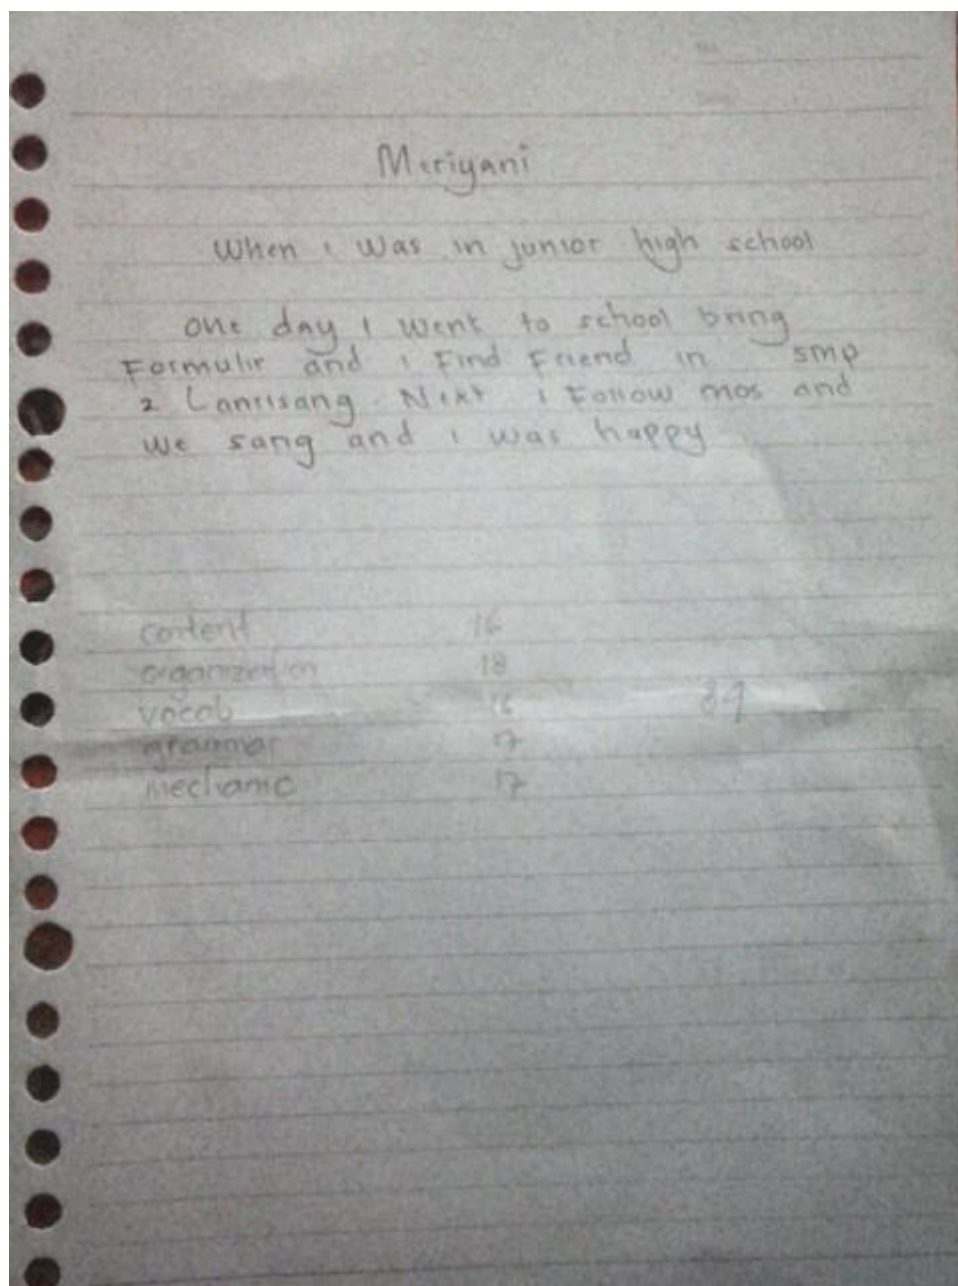 Meriyani
When i was in junior high school
one day i went to school bring
Formulir and i Find Friend in smp
2 Lanrisang. Next i Follow mos and
we sang and i was happy
content 16
organization 18
vocab 16
grammar 17
mechanic 17